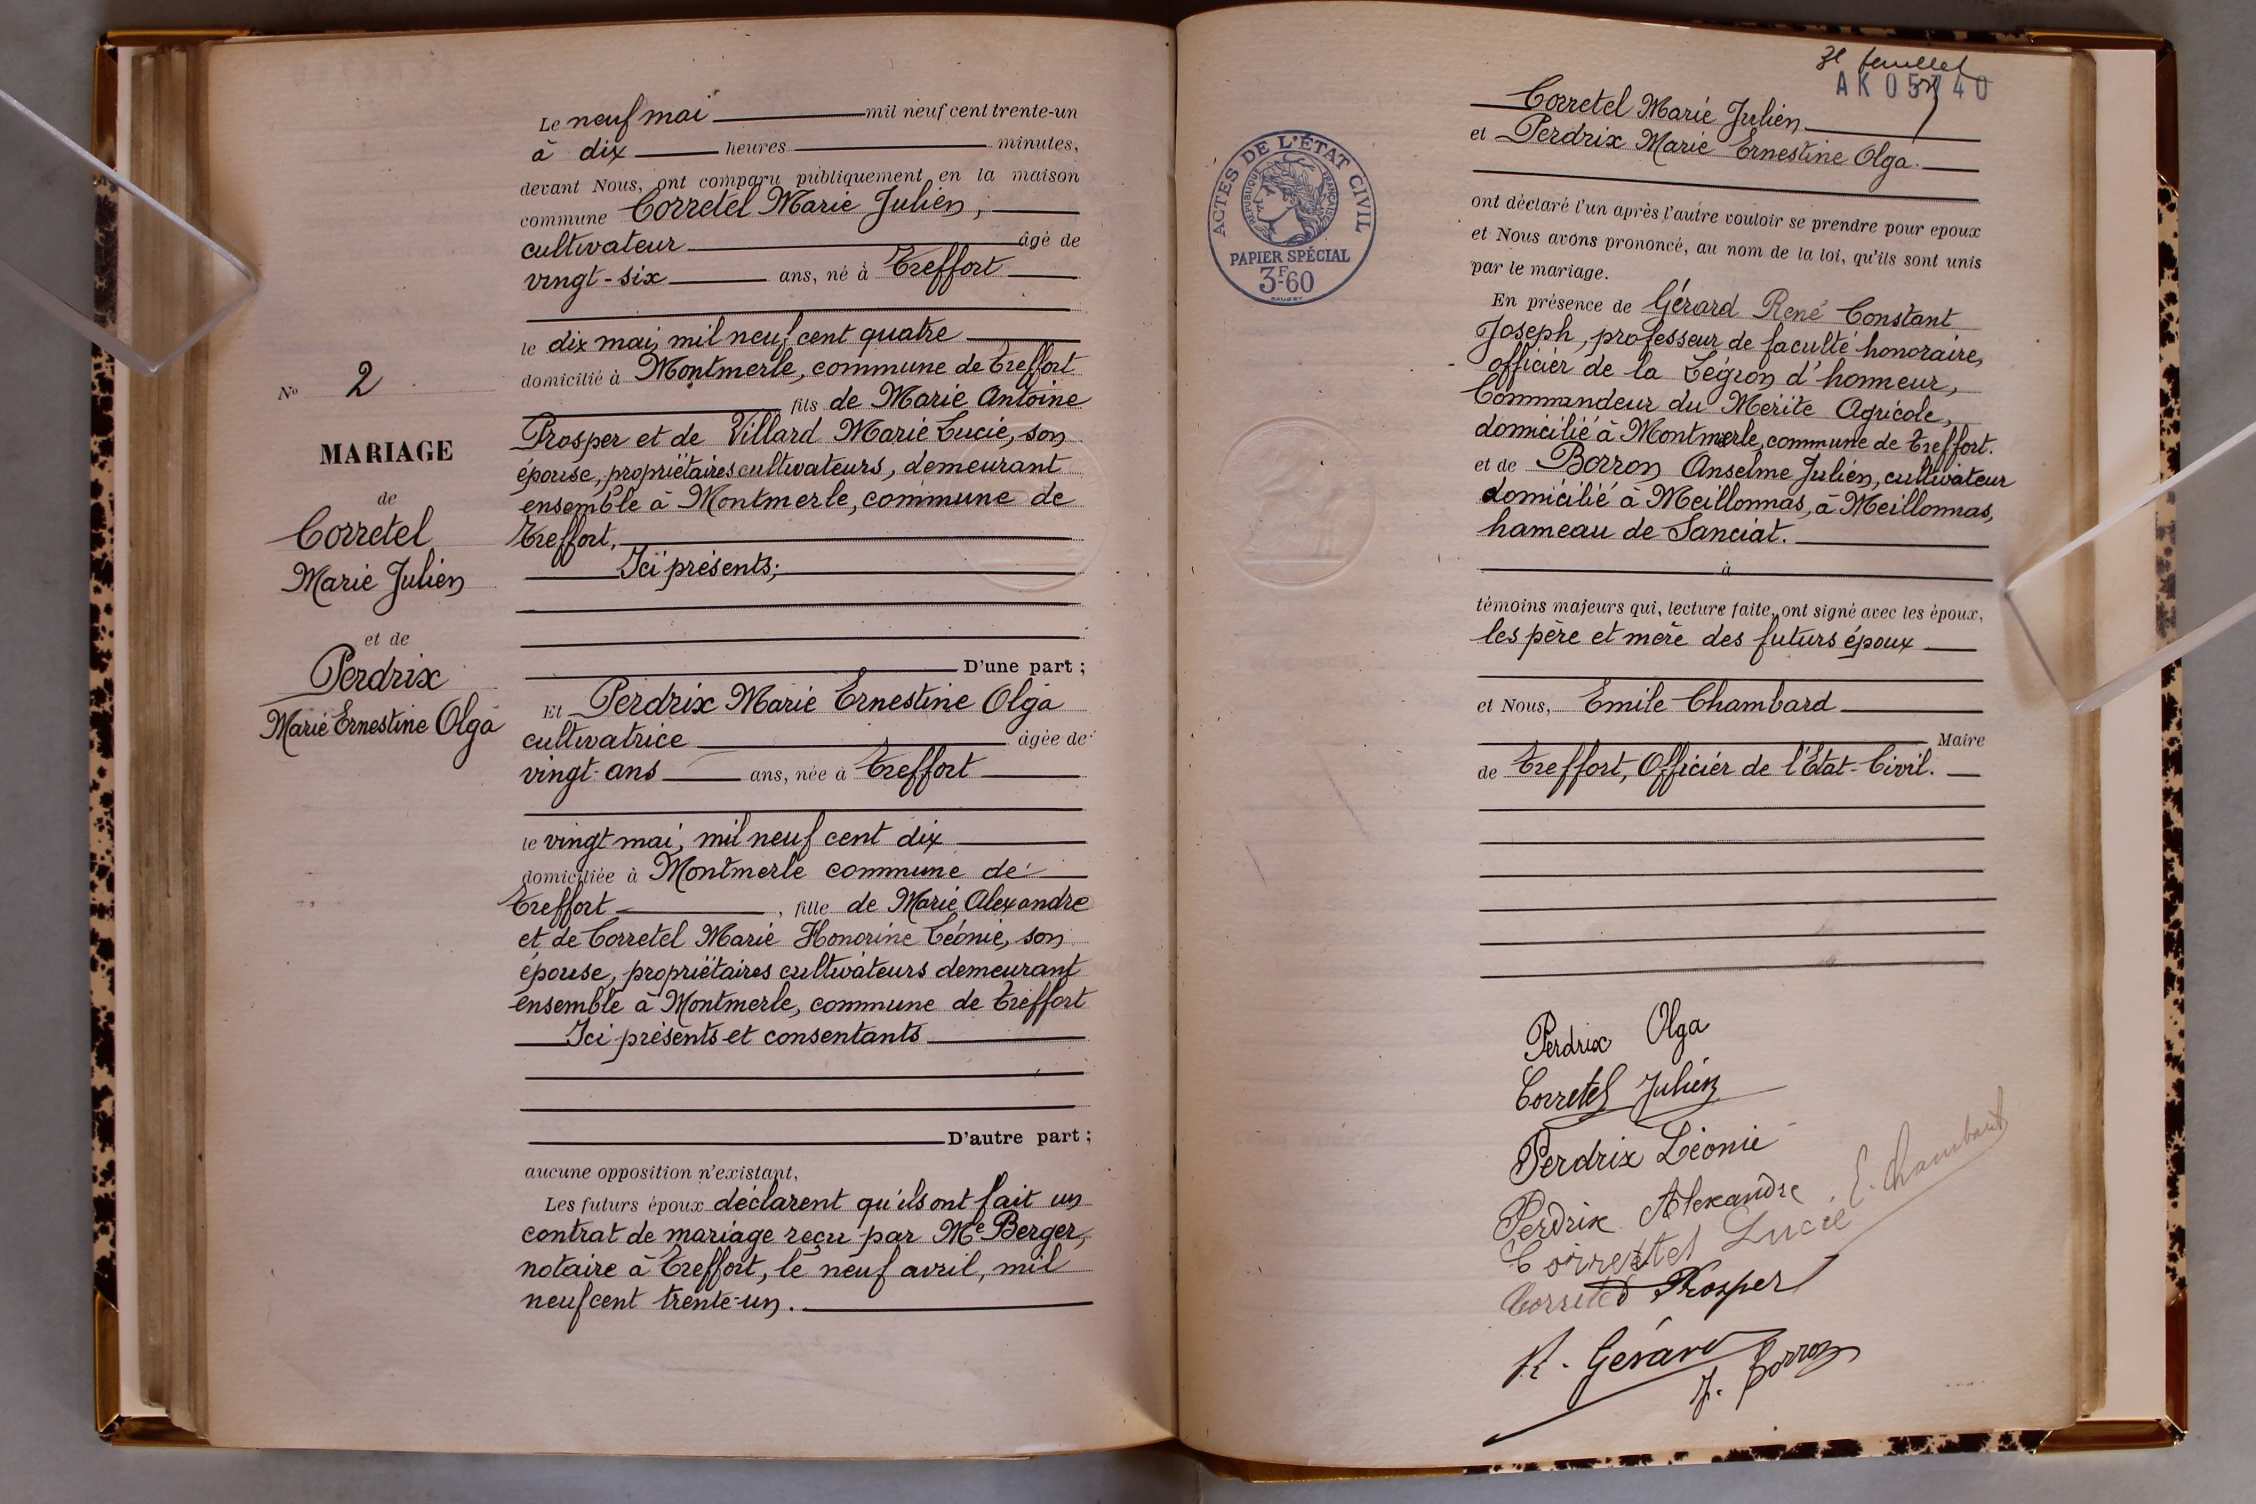 Le neuf mai mil neuf cent trente-un
à dix heures minutes,
devant Nous, ont comparu publiquement en la maison
commune Corretel Marie Julien,
cultivateur âgé de
vingt-six ans, né à Treffort
le dix mai, mil neuf cent quatre
domicilié à Montmerle, commune de Treffort
fils de Marie Antoine
Prosper et de Villard Marie Lucie, son
épouse, propriétaires cultivateurs, demeurant
ensemble à Montmerle, commune de
Treffort,
Ici présents;
D'une part ;
Et Perdrix Marie Ernestine Olga
cultivatrice âgée de
vingt-ans ans, née à Treffort
le vingt mai, mil neuf cent dix
domiciliée à Montmerle commune de
Treffort, fille de Marie Alexandre
et de Corretel Marie Honorine Léonie, son
épouse, propriétaires cultivateurs demeurant
ensemble à Montmerle, commune de Treffort
Ici présents et consentants
D'autre part ;
aucune opposition n'existant,
Les futurs époux déclarent qu'ils ont fait un
contrat de mariage reçu par Me Berger,
notaire à Treffort, le neuf avril, mil
neuf cent trente-un.
No 2
MARIAGE
de
Corretel
Marie Julien
et de
Perdrix
Marie Ernestine Olga
3e feuillet
ACTES DE L'ÉTAT CIVIL
RÉPUBLIQUE FRANÇAISE
PAPIER SPÉCIAL
3F-60
Corretel Marie Julien
et Perdrix Marie Ernestine Olga.
ont déclaré l'un après l'autre vouloir se prendre pour époux
et Nous avons prononcé, au nom de la loi, qu'ils sont unis
par le mariage.
En présence de Gérard René Constant
Joseph, professeur de faculté honoraire,
officier de la Légion d'honneur,
Commandeur du Mérite Agricole,
domicilié à Montmerle, commune de Treffort.
et de Borron Anselme Julien, cultivateur
domicilié à Meillonnas, à Meillonnas,
hameau de Sanciat.
à
témoins majeurs qui, lecture faite, ont signé avec les époux,
les père et mère des futurs époux
et Nous, Emile Chambard
Maire
de Treffort, Officier de l'Etat-Civil.
Perdrix Olga
Corretel Julien
Perdrix Léonie
Perdrix Alexandre
E. Chambard
Corretel Lucie
Corretel Prosper
R. Gérard
J. Borron